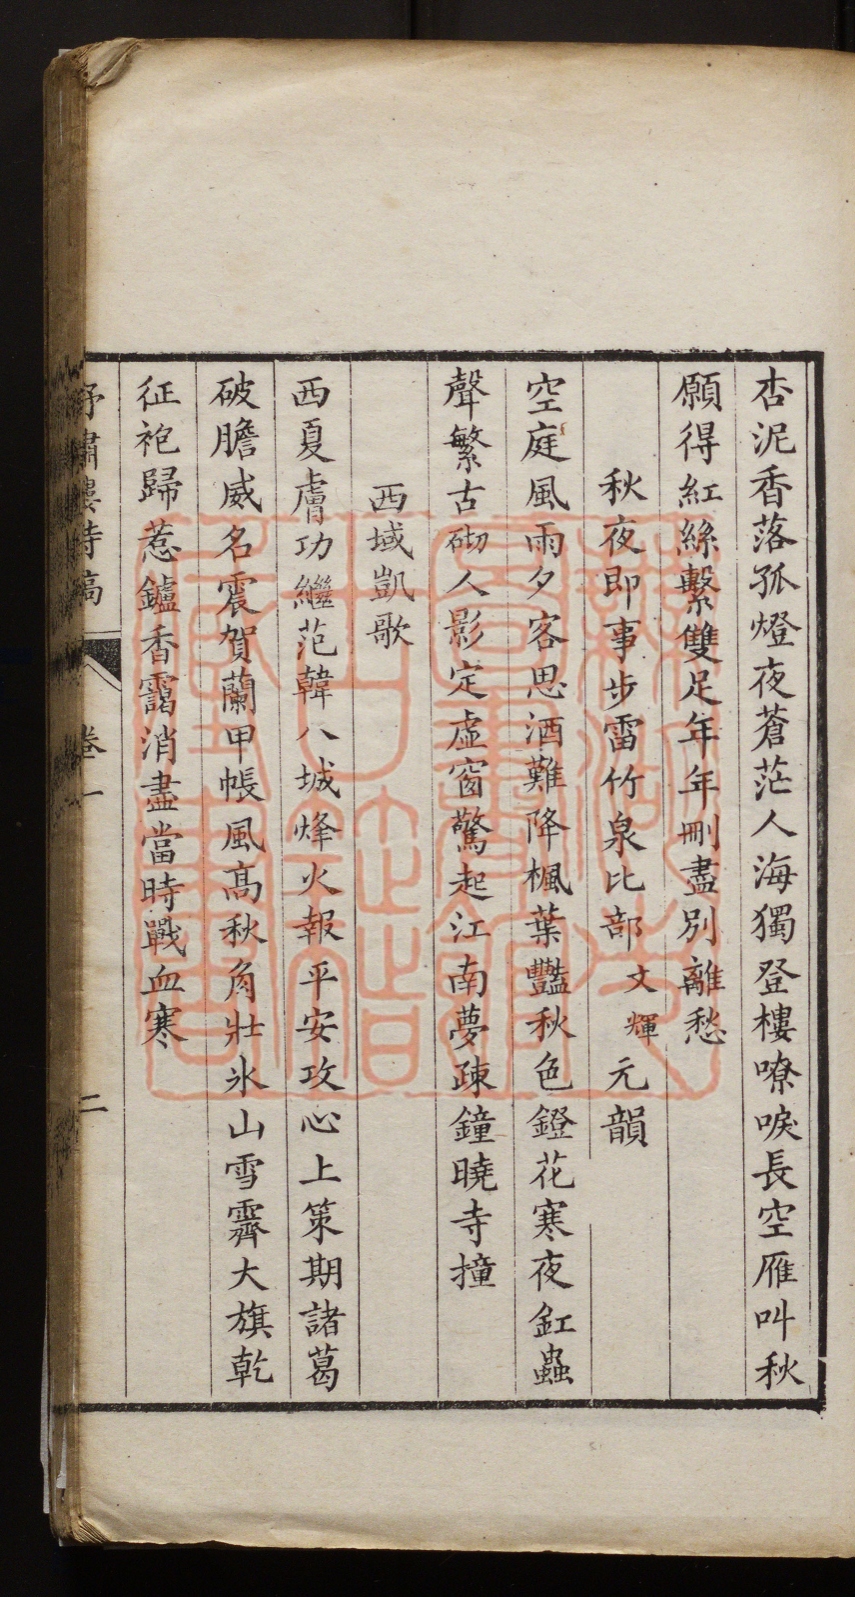 杏泥香落孤燈夜蒼茫人海獨登樓嘹唳長空雁叫秋
願得紅絲繫雙足年年刪盡別離愁
秋夜即事步雷竹泉比部文輝元韻
空庭風雨夕客思酒難降楓葉豔秋色鐙花寒夜釭蟲
聲繁古砌人影定虛窗驚起江南夢疎鐘曉寺撞
西域凱歌
西夏膚功繼范韓八城烽火報平安攻心上策期諸葛
破膽威名震賀蘭甲帳風高秋角壯氷山雪霽大旗乾
征袍歸惹鑪香靄消盡當時戰血寒
嘯樓詩稿 卷一 二